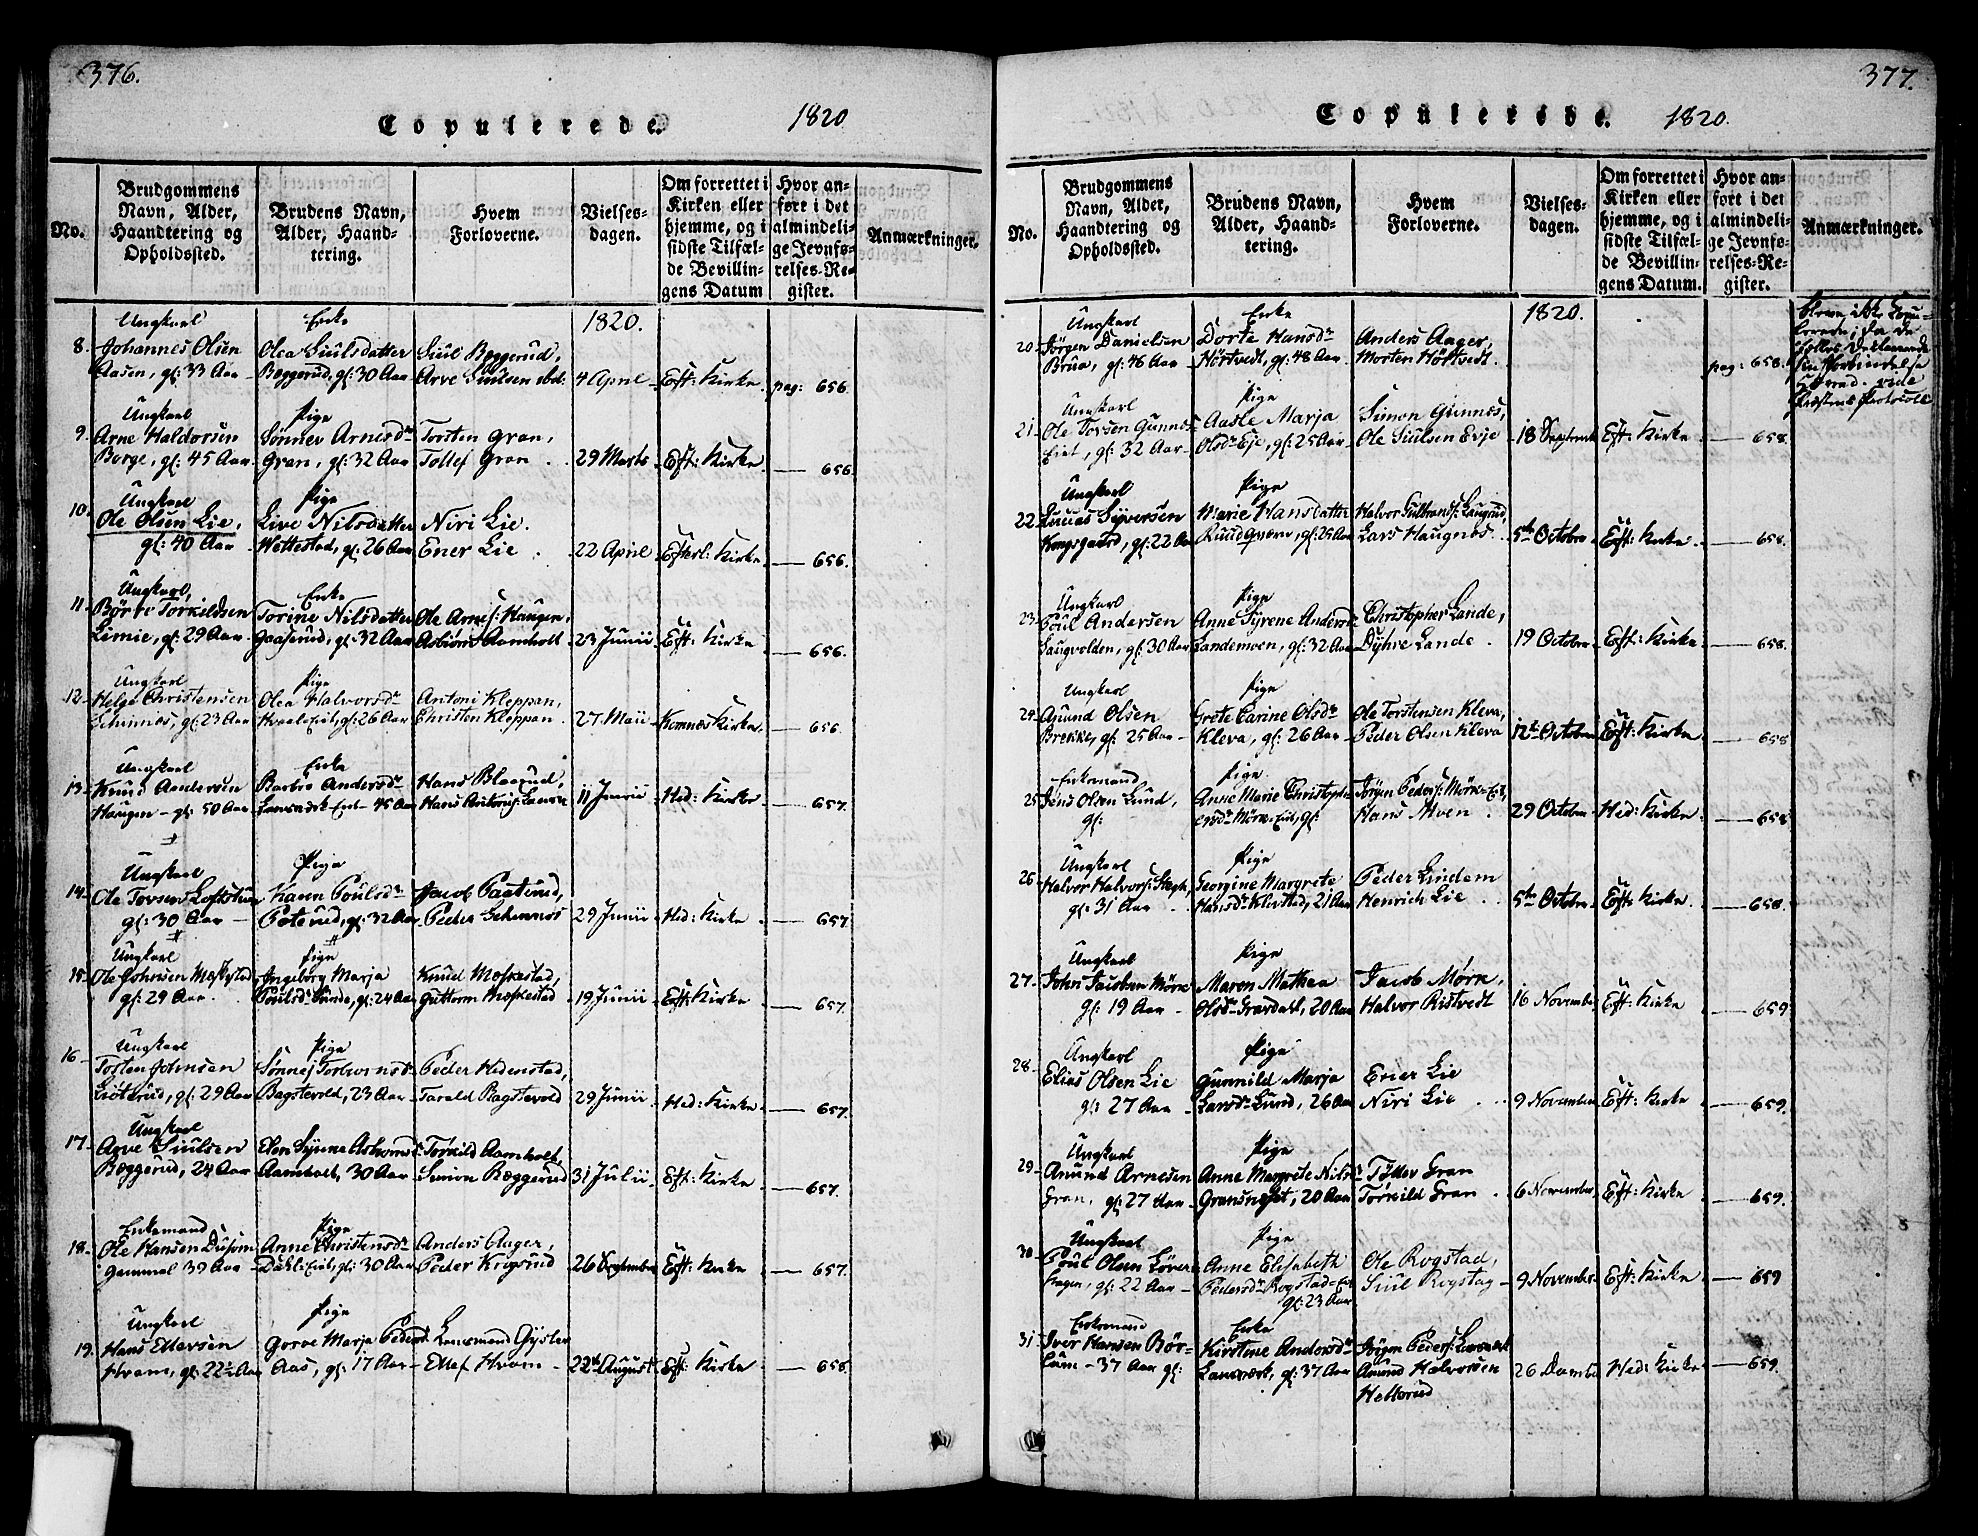 376.
Copulerede.
1820
No.
Brudgommens
Navn, Alder,
Haandtering og
Opholdssted.
Brudens Navn,
Alder, Haand-
tering.
Hvem
Forloverne.
Vielses-
dagen.
Om forrettet i
Kirken eller
hjemme, og i
sidste Tilfæl-
de Bevillin-
gens Datum
Hvor an-
ført i det
almindeli-
ge Jevnfø-
relses-Re-
gister.
Anmærkninger.
1820.
8.
Ungkarl
Johannes Olsen
Aasen, gl: 33 Aar
Enke
Olea Siulsdatter
Bæggerud, gl: 30 Aar
Siul Bæggerud,
Arve Siulsen sbd:
4 April
Eft: Kirke
pag: 656.
9.
Ungkarl
Arne Haldorsen
Berge, gl: 45 Aar
Pige
Sønnev Arnesdr
Gran, gl: 32 Aar
Torsten Gran,
Tollef Gran
29 Marts
Eft: Kirke
656.
10.
Ungkarl
Ole Olsen Lie,
gl: 40 Aar
Pige
Live Nilsdatter
Wettestad, gl: 26 Aar
Niri Lie.
Ener Lie
22 April
Efterl: Kirke
656.
11.
Ungkarl,
Børve Torkildsen
Limie, gl: 29 Aar
Enke
Torine Nilsdatter
Gaaserud, gl: 32 Aar
Ole Arnes: Haugen,
Asbiørn Aamholt
23 Junii
Eft: Kirke
656.
12.
Ungkarl
Helge Christensen
gl: 23 Aar
Pige
Olea Halvorsdr
gl: 26 Aar
Antoni Kleppan,
Christen Kleppan
27 Maii
Komnes Kirke.
656.
13.
Ungkarl
Knud Andersen
Haugen gl: 50 Aar
Enke
Barbro Andersdr
Lansværk Eiet 45 Aar
Hans Blaarud,
11 Junii
Hed: Kirke
657.
14.
Ungkarl
Ole Torsen
gl: 30 Aar
Pige
Karen Poulsdr
Poterud, gl: 32 Aar
Jacob
Peder
29 Junii
Hed: Kirke
657
15.
Ungkarl
Ole Johnsen
gl: 29 Aar.
Pige
Ingeborg Marja
Poulsdr Sunde, gl: 24 Aar
Knud Moskestad,
Guttorm Moskestad
19 Junii
Eft: Kirke
657.
16
Ungkarl
Torsten Johnsen
gl: 29 Aar
Pige
Bagstevold, 23 Aar
Peder Hedenstad,
Tarald Bagstevold
29 Junii
Hed: Kirke
657.
17.
Ungkarl
Arve Siulsen
Bæggerud, 24 Aar
Aamholt, 30 Aar
Torkild Aamholt,
Simon Bæggerud
31 Julii
Eft: Kirke
657.
18.
Enkemand
Ole Hansen
Gammel 39 Aar
Pige
Anne Christensdr
gl: 30 Aar
Anders Aager,
Peder Krigsrud
26 September
Eft: Kirke
657.
19.
Ungkarl
Hans Ellevsen
Hvam, gl: 22½ Aar
Pige
Gorve Marja Pedersd:
Aas, gl: 17 Aar
Lensmand Gysler
Ellef Hvam
22d August
Eft: Kirke
658.
377.
Copulerede.
1820.
No.
Brudgommens
Navn, Alder,
Haandtering og
Opholdssted.
Brudens Navn,
Alder, Haand-
tering.
Hvem
Forloverne.
Vielses-
dagen.
Om forrettet i
Kirken eller
hjemme, og i
sidste Tilfæl-
de Bevillin-
gens Datum.
Hvor an-
ført i det
almindeli-
ge Jevnfø-
relses-Re-
gister.
Anmærkninger.
1820.
20.
Ungkarl
Jørgen Danielsen
Brua, gl: 46 Aar
Enke
Dorte Hansdr
Hørtvedt, gl: 48 Aar
Anders Aager,
Morten Hørtvedt.
pag: 658.
bleve ikke Copu-
lerede, da de
21.
Ungkarl
Ole Torsen Gunnes
Eiet, gl: 32 Aar
Pige
Aasle Marja
Olsdr Eje, gl: 25 Aar
Simon Gunnes,
Ole Siulsen Evje
18 Septemb
Eft: Kirke
658.
22.
Ungkarl
Lucas Syversen
Kongsgaard, gl: 22 Aar
Pige
Marie Hansdatter
Ruud gl: 25 Aar
Lars Haugnes
5te October
Eft: Kirke
658.
23.
Ungkarl
Poul Andersen
Haugvolden, gl: 30 Aar
Pige
Anne Syrene Andersdr
Landemoen, gl: 32 Aar
Christopher Lande,
Dyhre Lande
19 October
Eft: Kirke
658.
24.
Ungkarl
Amund Olsen
Brekke, gl: 25 Aar
Pige
Grete Carine Olsdr
Kleva, gl: 26 Aar
Ole Torstensen Kleva,
Peder Olsen Kleva
12te October
Eft: Kirke
658
25.
Enkemand,
Jens Olsen Lund,
gl:
Pige.
Anne Marie Christoph-
ersdr Mørk-Eiet, gl:
Jørgen Peders: Mørk-Eiet,
Hans Moen
29 October
Hed: Kirke
658
26.
Ungkarl
Halvor Halvors:
gl: 31 Aar
Pige
Georgine Margrete
Hansdr Klevstad, 21 Aar
Peder Lindem
Henrich Lie
5te October
Eft: Kirke
658.
27.
Ungkarl
John Jacobsen Mørk
gl: 19 Aar
Pige
Maren Mathea
Olsdr Gravdalt, 20 Aar
Jacob Mørk,
Halvor Ristvedt
16 November
Eft: Kirke
659
28.
Ungkarl
Elias Olsen Lie
gl: 27 Aar
Pige
Gunnild Marja
Larsdr Lund, 26 Aar
Ener Lie
Niri Lie
9 November
Eft: Kirke
659.
29.
Ungkarl
Anund Arnesen
Gran, gl: 27 Aar
Pige
Anne Margrete Nils-
20 Aar
Tollev Gran
Torkild Gran
6 November
Eft: Kirke
659.
30.
Ungkarl
Poul Olsen Løver
gl: 22 Aar
Pige
Anne Elisabeth
Pedersdr Rogstad-Eiet
gl: 23 Aar
Ole Rogstad,
Siul Rogstag
9 November.
Eft: Kirke
659
31.
Enkemand
Iver Hansen Bør-
37 Aar gl:
Enke
Kirstine Andersdr
Lansværk, gl: 37 Aar
Jørgen Peders: Lansværk
Amund Halvorsen
Hellerud
26 Decmb
Hed: Kirke
659.